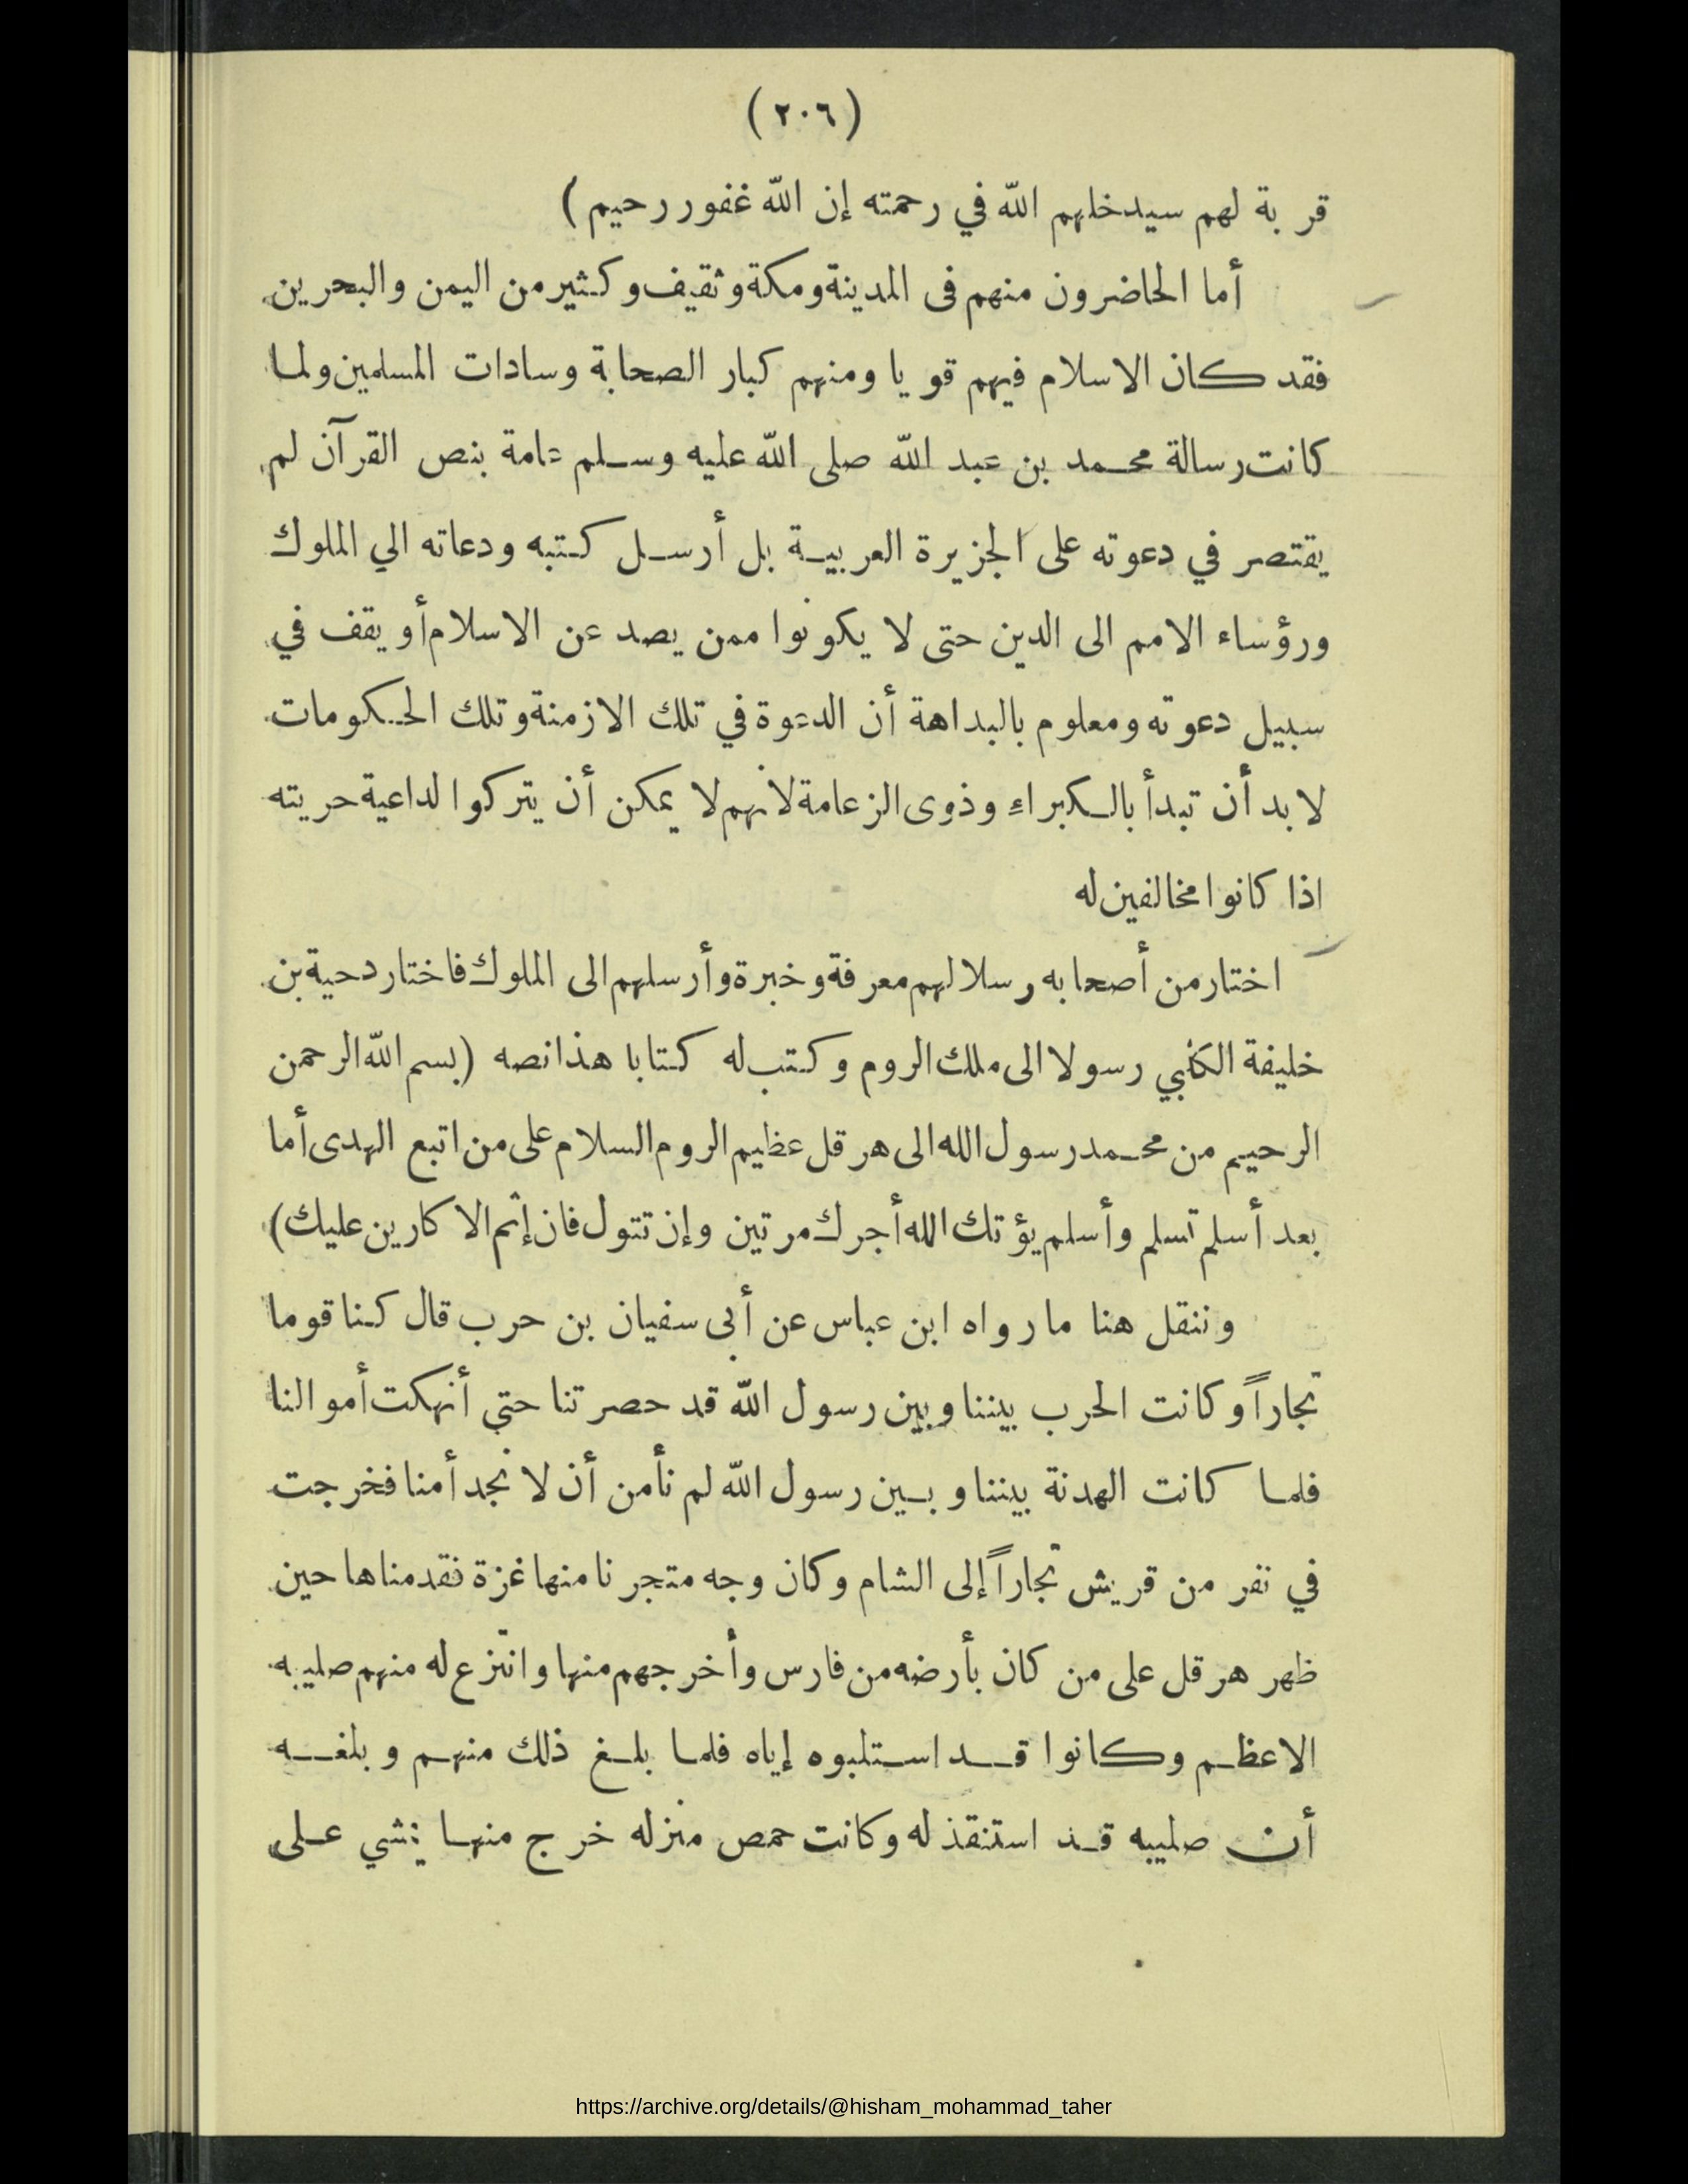 (٢٠٦)
قربة لهم سيدخلهم الله في رحمته إن الله غفور رحيم )
أما الحاضرون منهم فى المدينة ومكة وثقيف وكثير من اليمن والبحرين
فقد كان الاسلام فيهم قويا ومنهم كبار الصحابة وسادات المسلمين ولما
كانت رسالة محمد بن عبد الله صلى الله عليه وسلم عامة بنص القرآن لم
يقتصر في دعوته على الجزيرة العربية بل أرسل كتبه ودعاته الي الملوك
ورؤساء الامم الى الدين حتى لا يكونوا ممن يصد عن الاسلام أو يقف في
سبيل دعوته ومعلوم بالبداهة أن الدعوة في تلك الازمنة وتلك الحكومات
لا بد أن تبدأ بالكبراء وذوى الزعامة لانهم لا يمكن أن يتركوا لداعية حريته
اذا كانوا مخالفين له
اختار من أصحابه رسلا لهم معرفة وخبرة وأرسلهم الى الملوك فاختار دحية بن
خليفة الكلبي رسولا الى ملك الروم وكتب له كتابا هذا نصه (بسم الله الرحمن
الرحيم من محمد رسول الله الى هرقل عظيم الروم السلام على من اتبع الهدى أما
بعد أسلم تسلم وأسلم يؤتك الله أجرك مرتين وإن تتول فان إثم الاكارين عليك)
وننقل هنا ما رواه ابن عباس عن أبى سفيان بن حرب قال كنا قوما
تجاراً وكانت الحرب بيننا وبين رسول الله قد حصرتنا حتي أنهكت أموالنا
فلما كانت الهدنة بيننا وبين رسول الله لم نأمن أن لا نجد أمنا فخرجت
في نفر من قريش تجاراً إلى الشام وكان وجه متجرنا منها غزة فقدمناها حين
ظهر هرقل على من كان بأرضه من فارس وأخرجهم منها وانتزع له منهم صليبه
الاعظم وكانوا قد استلبوه إياه فلما بلغ ذلك منهم وبلغه
أن صليبه قد استنقذ له وكانت حمص منزله خرج منها يمشي على
https://archive.org/details/@hisham_mohammad_taher